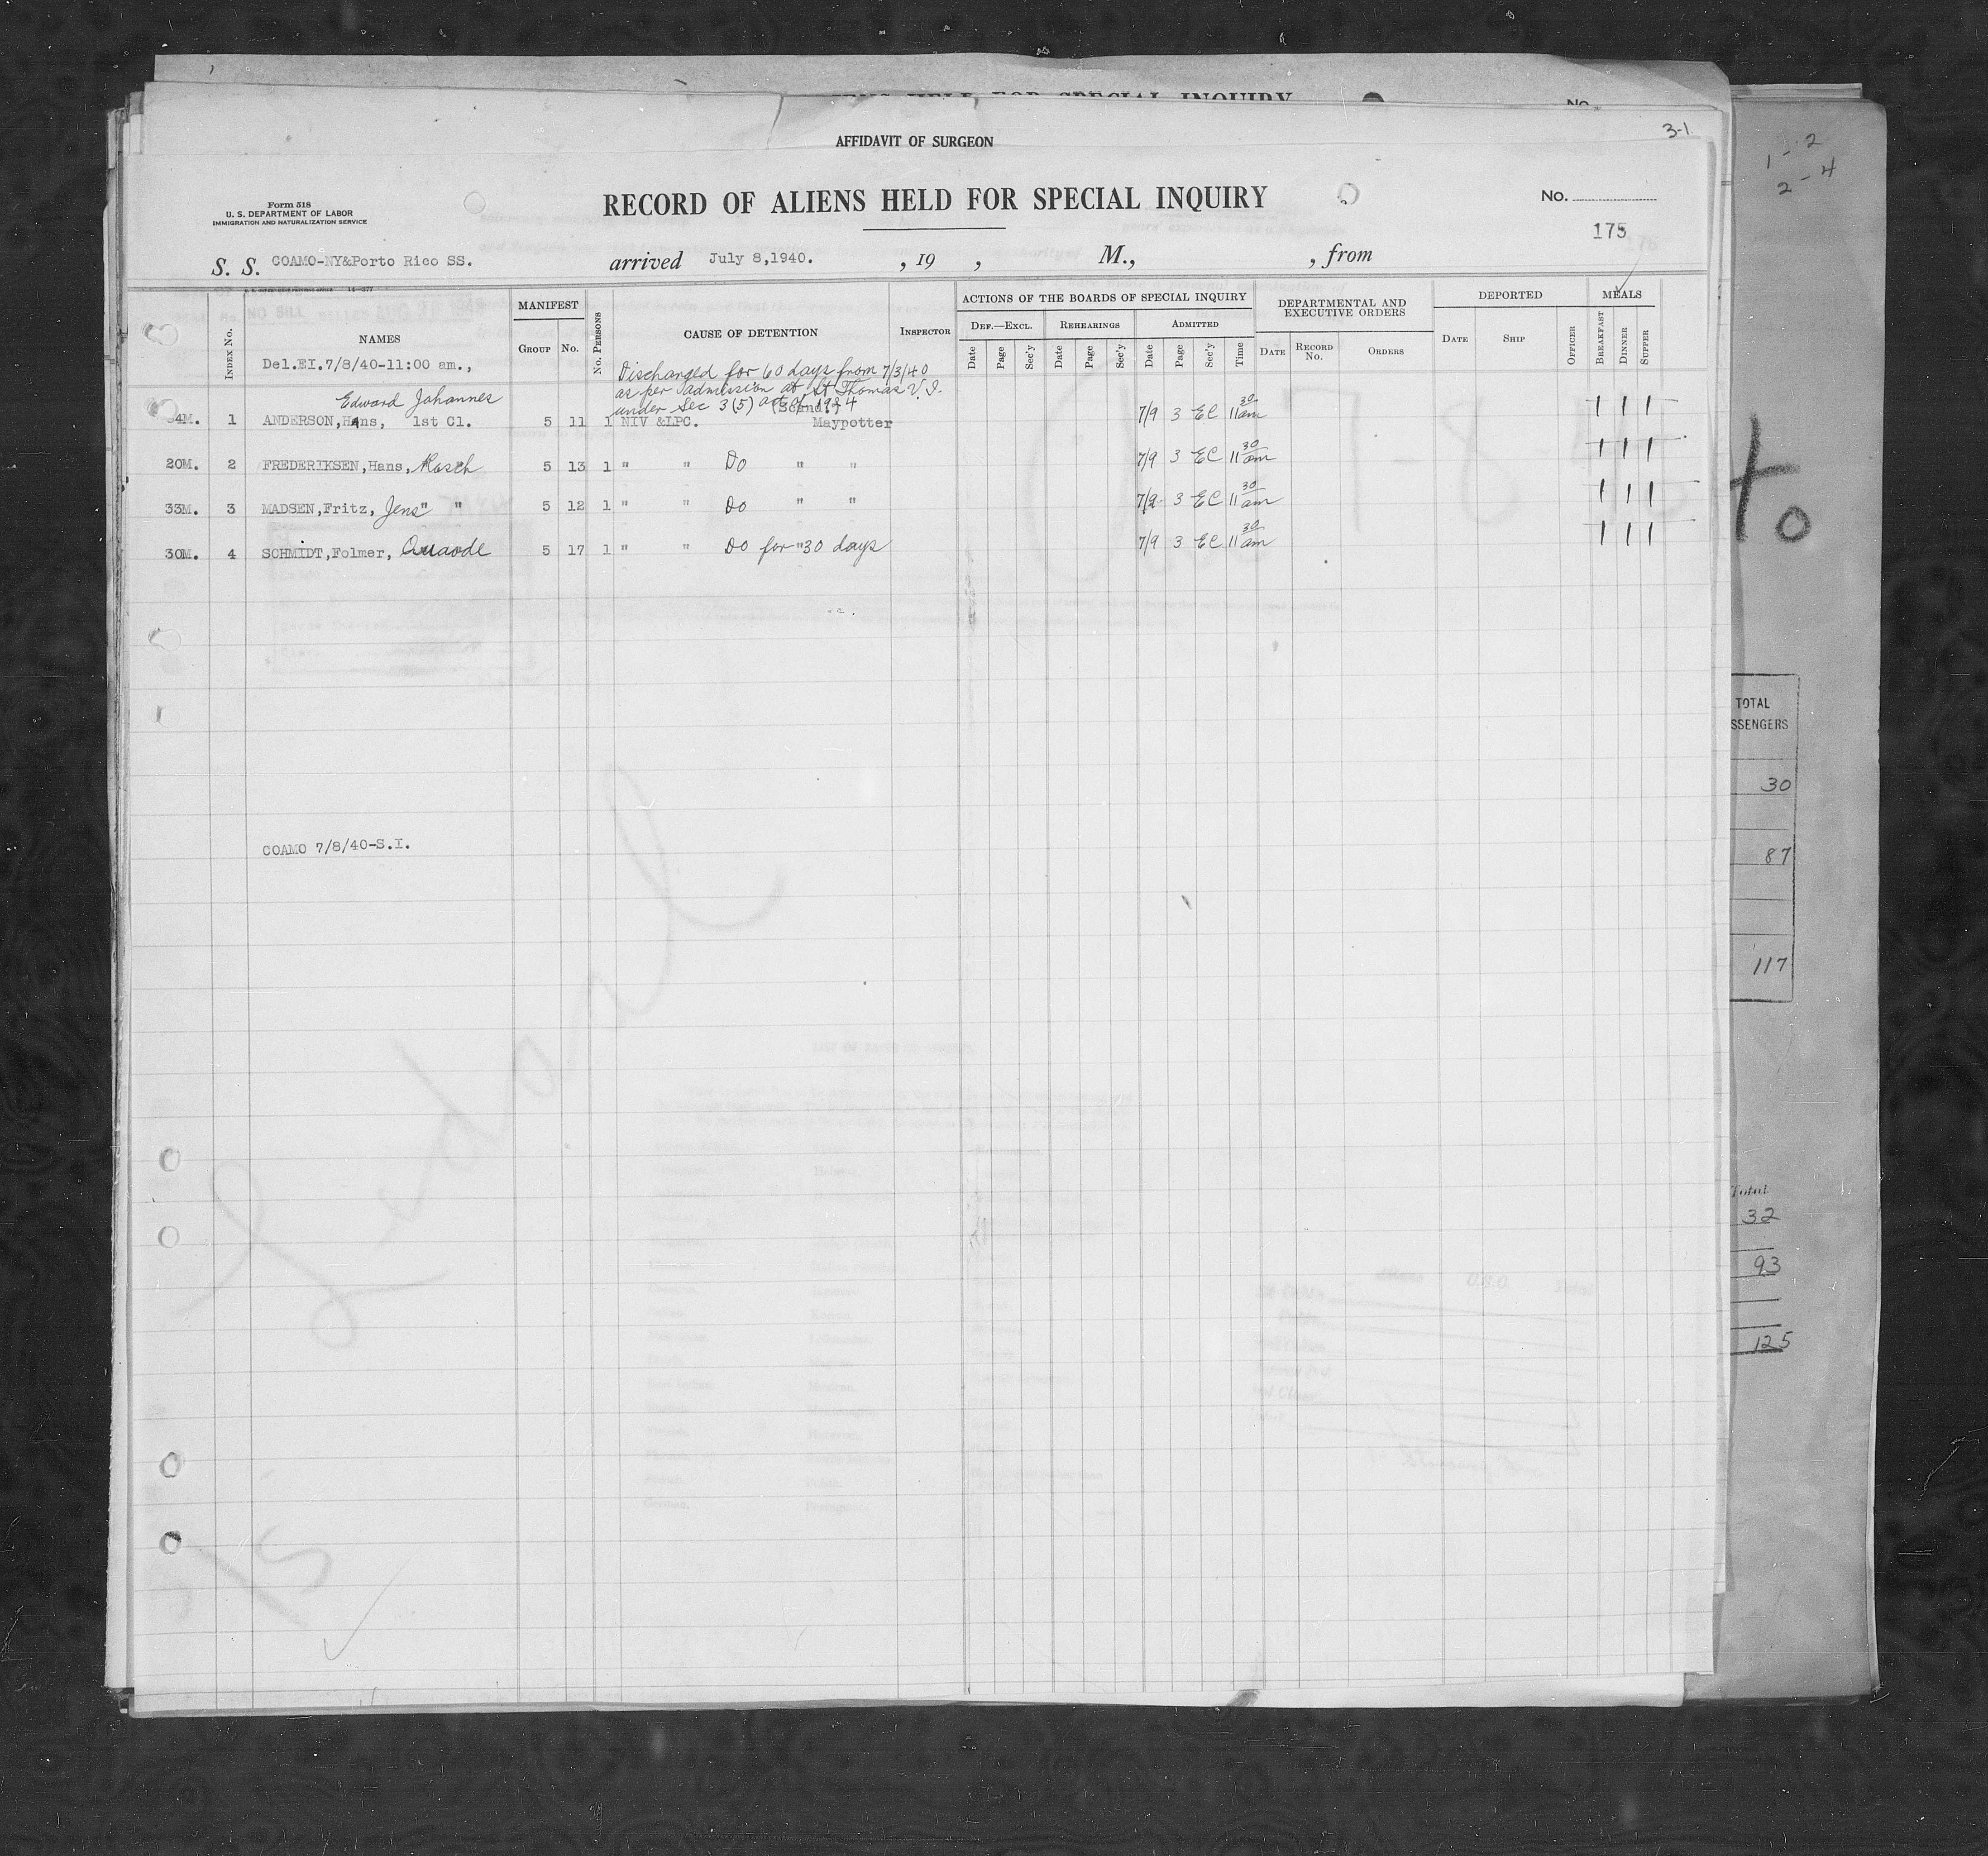 HELD FOR SPECIAL INQUIRY
No.
3-1
1-2
2-4
AFFIDAVIT OF SURGEON
Form 518
U. S. DEPARTMENT OF LABOR
IMMIGRATION AND NATURALIZATION SERVICE
RECORD OF ALIENS HELD FOR SPECIAL INQUIRY
No.
175
S. S. COAMO-NY&Porto Rico SS. arrived July 8,1940. , 19 , M., , from
INDEX No. NAMES MANIFEST GROUP No. No. PERSONS CAUSE OF DETENTION INSPECTOR
ACTIONS OF THE BOARDS OF SPECIAL INQUIRY
DEF.—EXCL. REHEARINGS ADMITTED
Date Page Sec'y Date Page Sec'y Date Page Sec'y Time
DEPARTMENTAL AND EXECUTIVE ORDERS
DATE RECORD No. ORDERS
DEPORTED
DATE SHIP OFFICER
MEALS
BREAKFAST DINNER SUPPER
NO BILL
Del.EI.7/8/40-11:00 am.,
Discharged for 60 days from 7/3/40
as per admission at St Thomas V.I.
under Sec 3(5) act of 1924
(Scand.)
Edward Johannes
34M. 1 ANDERSON,Hans, 1st Cl. 5 11 1 NIV &LPC. Maypotter 7/9 3 EC 11 30 am
20M. 2 FREDERIKSEN,Hans, Rasch 5 13 1 " " Do " " 7/9 3 EC 11 30 am
33M. 3 MADSEN,Fritz, Jens " " 5 12 1 " " Do " " 7/9 3 EC 11 30 am
30M. 4 SCHMIDT,Folmer, 5 17 1 " " Do for " 30 days 7/9 3 EC 11 30 am
COAMO 7/8/40-S.I.
TOTAL
SSENGERS
30
87
117
Total
32
93
125